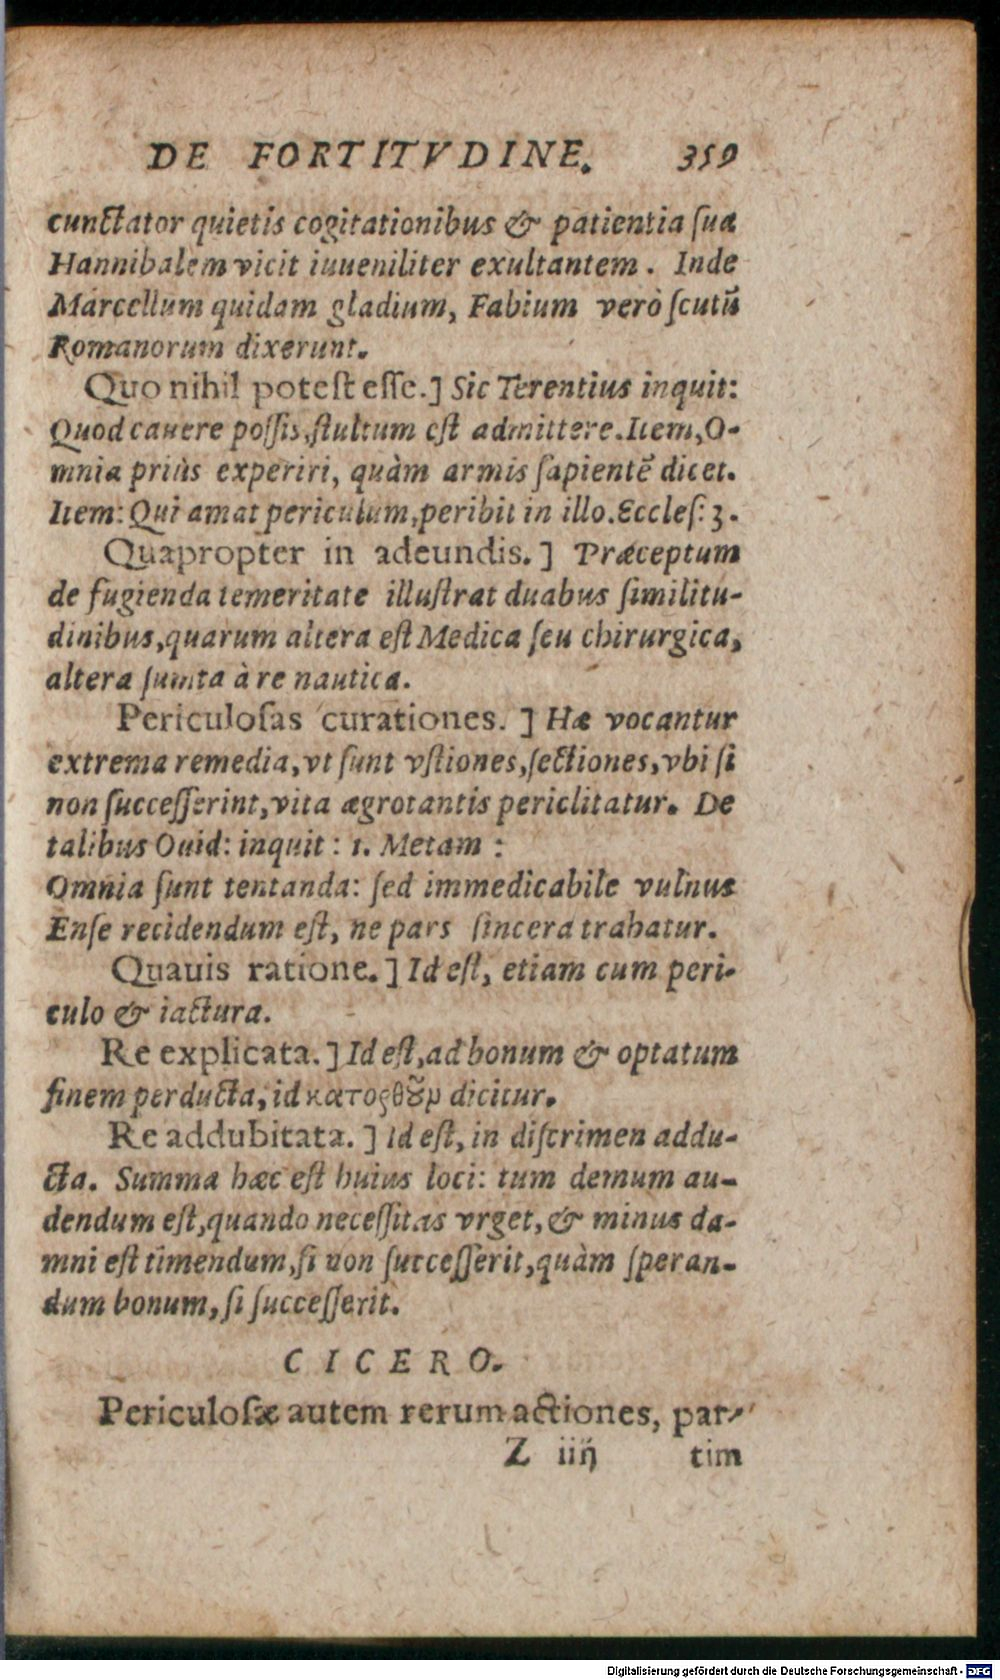 DE FORTITVDINE. 359
cunctator quietis cogitationibus & patientia ſua
Hannibalem vicit iuueniliter exultantem. Inde
Marcellum quidam gladium, Fabium verò ſcutū
Romanorum dixerunt.
Quo nihil poteſt eſſe.] Sic Terentius inquit:
Quod cauere poſſis, ſtultum eſt admittere. Item, O-
mnia priùs experiri, quàm armis ſapientē dicet.
Item: Qui amat periculum, peribit in illo. Eccleſ: 3.
Quapropter in adeundis.] Præceptum
de fugienda temeritate illuſtrat duabus ſimilitu-
dinibus, quarum altera eſt Medica ſeu chirurgica,
altera ſumta à re nautica.
Periculoſas curationes.] Hæ vocantur
extrema remedia, vt ſunt vſtiones, ſectiones, vbi ſi
non ſucceſſerint, vita ægrotantis periclitatur. De
talibus Ouid: inquit: 1. Metam:
Omnia ſunt tentanda: ſed immedicabile vulnus
Enſe recidendum eſt, ne pars ſincera trahatur.
Quauis ratione.] Id eſt, etiam cum peri-
culo & iactura.
Re explicata.] Id eſt, ad bonum & optatum
finem perducta, id κατορθȣ̃ν dicitur.
Re addubitata.] Id eſt, in diſcrimen addu-
cta. Summa hæc eſt huius loci: tum demum au-
dendum eſt, quando neceſſitas vrget, & minus da-
mni eſt timendum, ſi non ſucceſſerit, quàm ſperan-
dum bonum, ſi ſucceſſerit.
CICERO.
Periculoſæ autem rerum actiones, par-
Z iiij tim
Digitalisierung gefördert durch die Deutsche Forschungsgemeinschaft - DFG